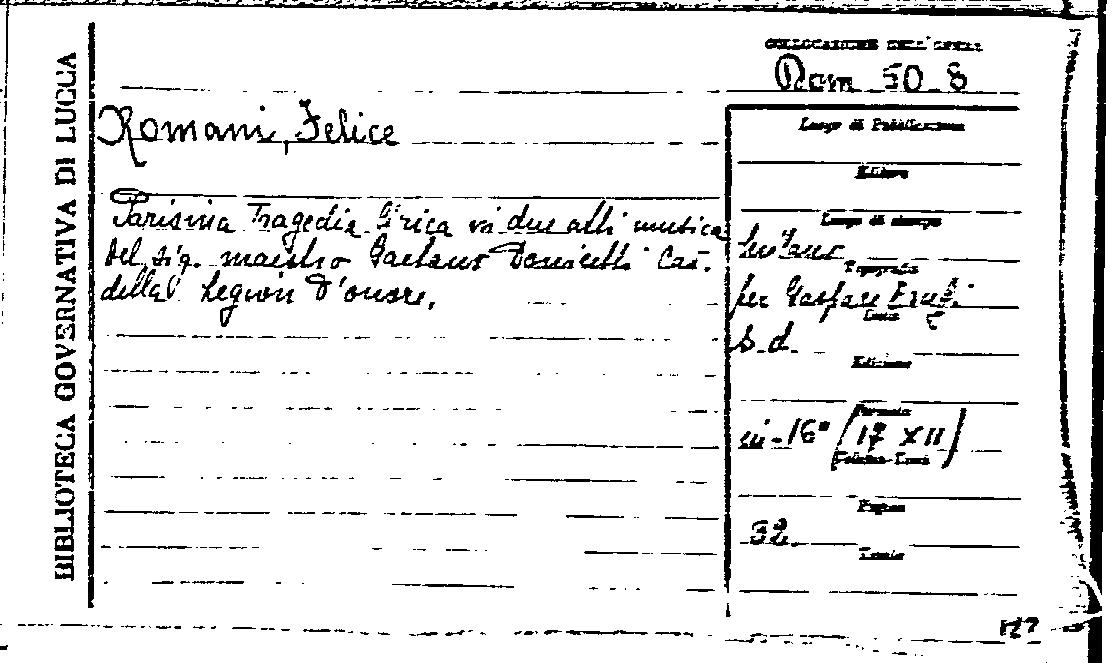 BIBLIOTECA GOVERNATIVA DI LUCCA
COLLOCAZIONE DELL'OPERA
Rom 50-8
Romani, Felice
Parisina Tragedia lirica in due atti musica
del sig. maestro Gaetano Donizetti Cav.
della Legion d'onore.
Luogo di Pubblicazione
Editore
Luogo di stampa
Tipografia
per Gaspare
Data
s. d.
Edizione
Formato
in-16° (17 XII)
Pagine
32.
Tavole